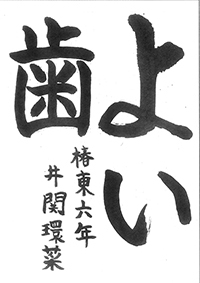 よい
歯
椿東六年
井関環菜